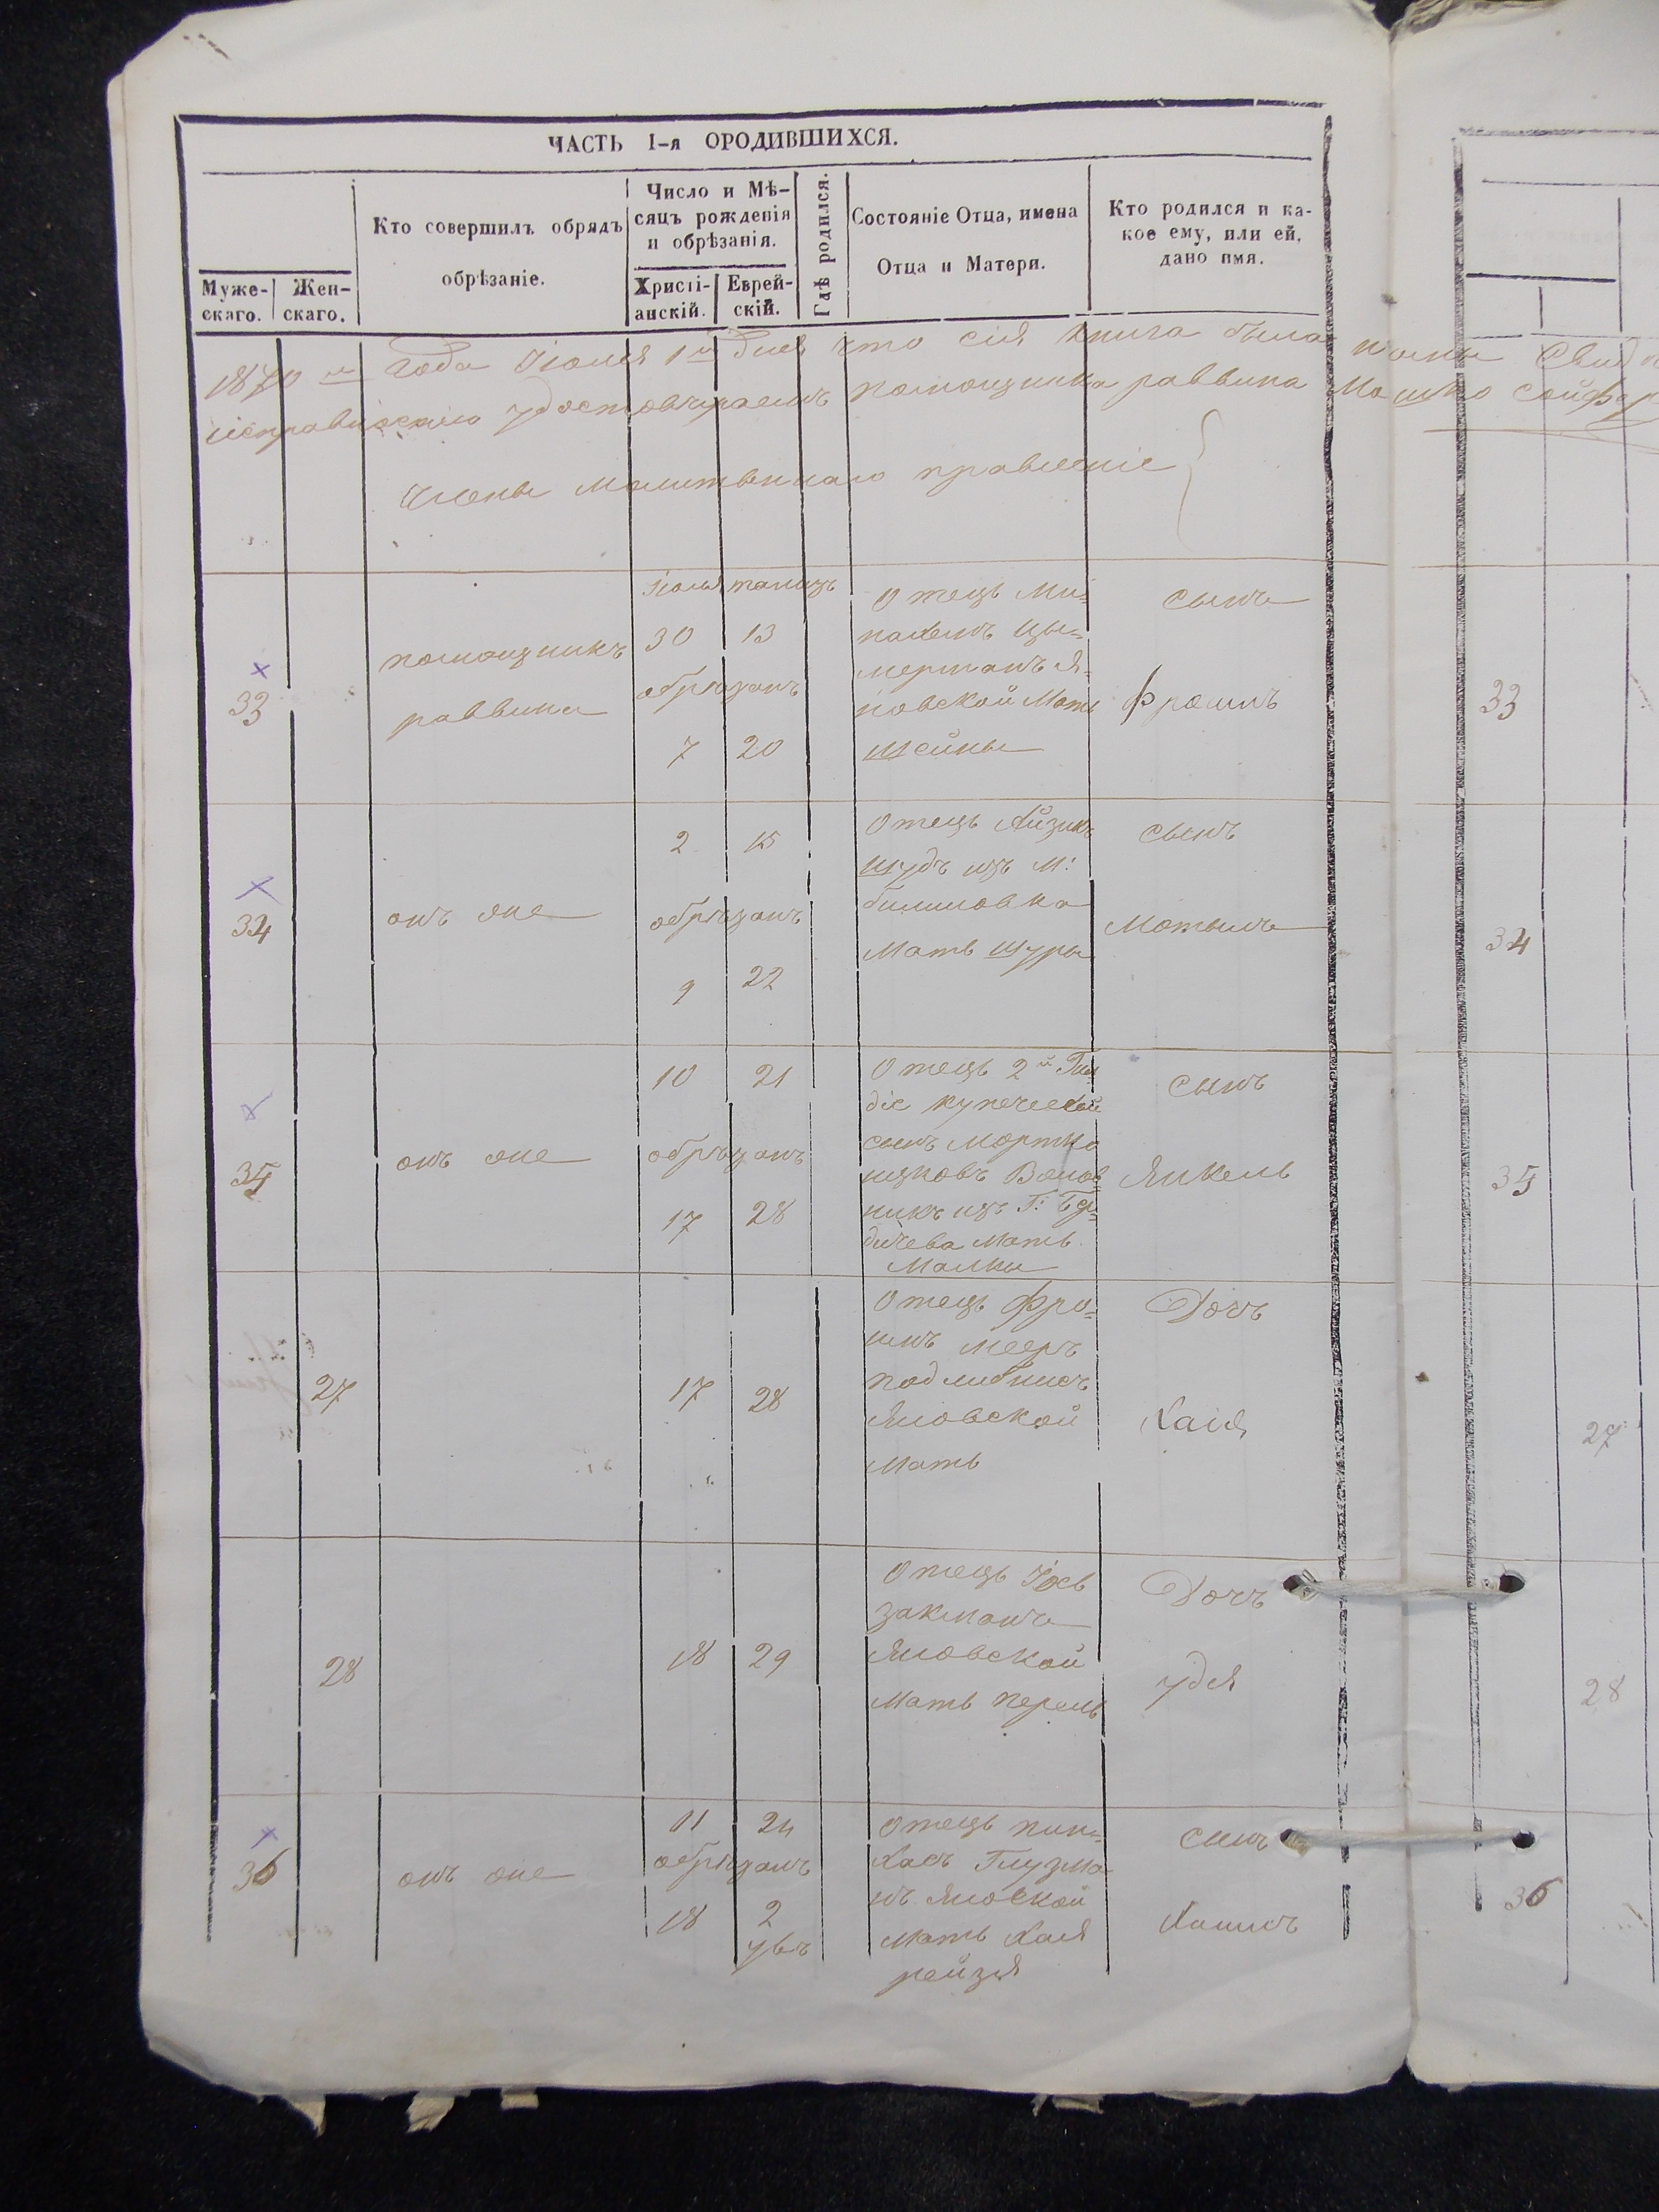 ЧАСТЬ I-я ОРОДИВШИХСЯ.
Муже-
скаго.
Жен-
скаго.
Кто совершилъ обрядъ
обрѣзаніе.
Число и Мѣ-
сяцъ рожденія
и обрѣзанія.
Христі-
анскій.
Еврей-
скій.
Гдѣ родился.
Состояніе Отца, имена
Отца и Матери.
Кто родился и ка-
кое ему, или ей,
дано имя.
1870 года Іюля 1 Дня что сія книга была
удостовѣряемъ помощника раввина Мошко
Члены Молитвеннаго правленіе
33
помощникъ
раввина
30 13
обрѣзанъ
7 20
Отецъ Ми-
нахемъ Цы-
мерманъ Я-
новской Мать
Шейны
сынъ
Фроимъ
33
34
онъ же
2 15
обрѣзанъ
9 22
Отецъ Айзикъ
Шудъ изъ М:
Мать Шуры
сынъ
Мотыль
34
35
онъ же
10 21
обрѣзанъ
17 28
Отецъ 2й Гил
діе купеческой
сынъ Мортко
изъ Г: Бер-
дичева Мать
Малки
сынъ
Янкель
35
27
17 28
Отецъ Фро-
имъ Мееръ
Яновской
Мать
Дочъ
Хаія
27
28
18 29
Отецъ Іосъ
закманъ
Яновской
Мать перель
Дочъ
удя
28
36
онъ же
11 24
обрѣзанъ
18 2
Отецъ пин-
хасъ Глузма-
нъ Яновской
Мать Хая
рейзя
сынъ
Хаимъ
36